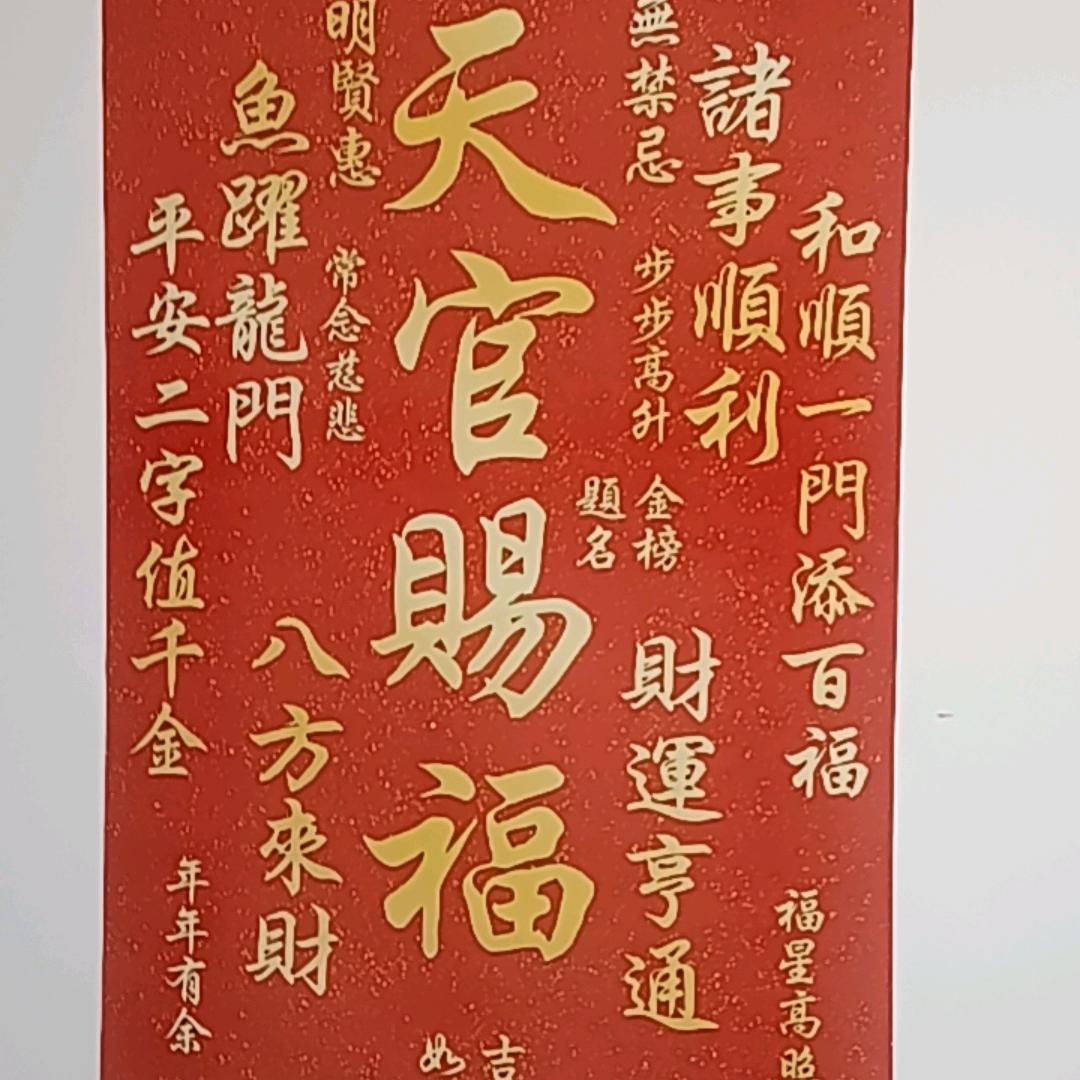 和順一門添百福
福星高照
諸事順利
財運亨通
無禁忌
步步高升
金榜
題名
天官賜福
吉
如
明賢惠
常念慈悲
魚躍龍門
八方來財
平安二字值千金
年年有余